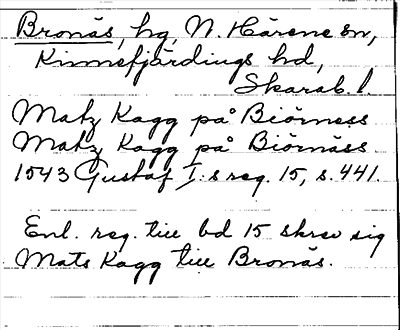 Bronäs, hg, N. Härene sn,
Kinnefjärdings hd,
Skarab. l.
Matz Kagg på Biörness
Matz Kagg på Biörnäss
1543 Gustaf I:s reg. 15, s. 441.
Enl. reg. till bd 15 skrev sig
Mats Kagg till Bronäs.